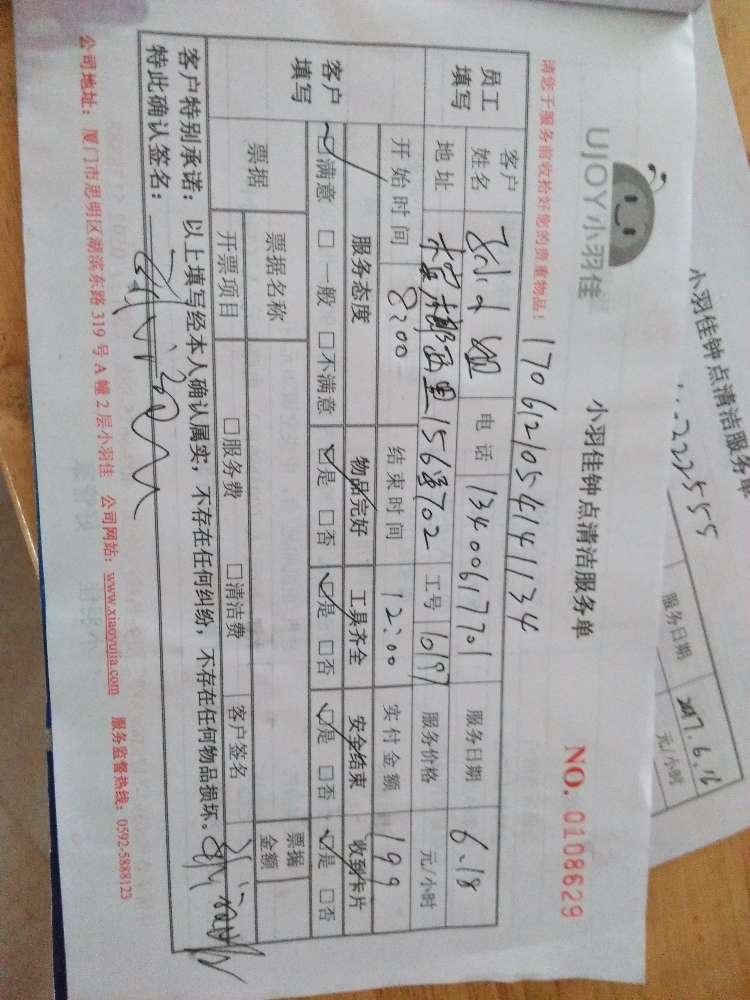 UJOY小羽佳
小羽佳钟点清洁服务单
NO. 0108629
请您于服务前收拾好您的贵重物品！
1706121054141134
员工填写
客户姓名 小姐 电话 13400617701 服务日期 6.18
地址 西里156号702 工号 1019 服务价格 元/小时
开始时间 8:00 结束时间 12:00 实付金额 199
客户填写
服务态度 物品完好 工具齐全 安全结束 收到卡片
☑满意 □一般 □不满意 ☑是 □否 ☑是 □否 ☑是 □否 ☑是 □否
票据 票据名称 票据金额
开票项目 □服务费 □清洁费 客户签名
客户特别承诺：以上填写经本人确认属实，不存在任何纠纷，不存在任何物品损坏。
特此确认签名：
公司地址：厦门市思明区湖滨东路 319 号 A 幢 2 层小羽佳 公司网站：www.xiaoyujia.com 服务监督热线：0592-5888123
小羽佳钟点清洁服务单
222555
服务日期 2017.6.16
元/小时